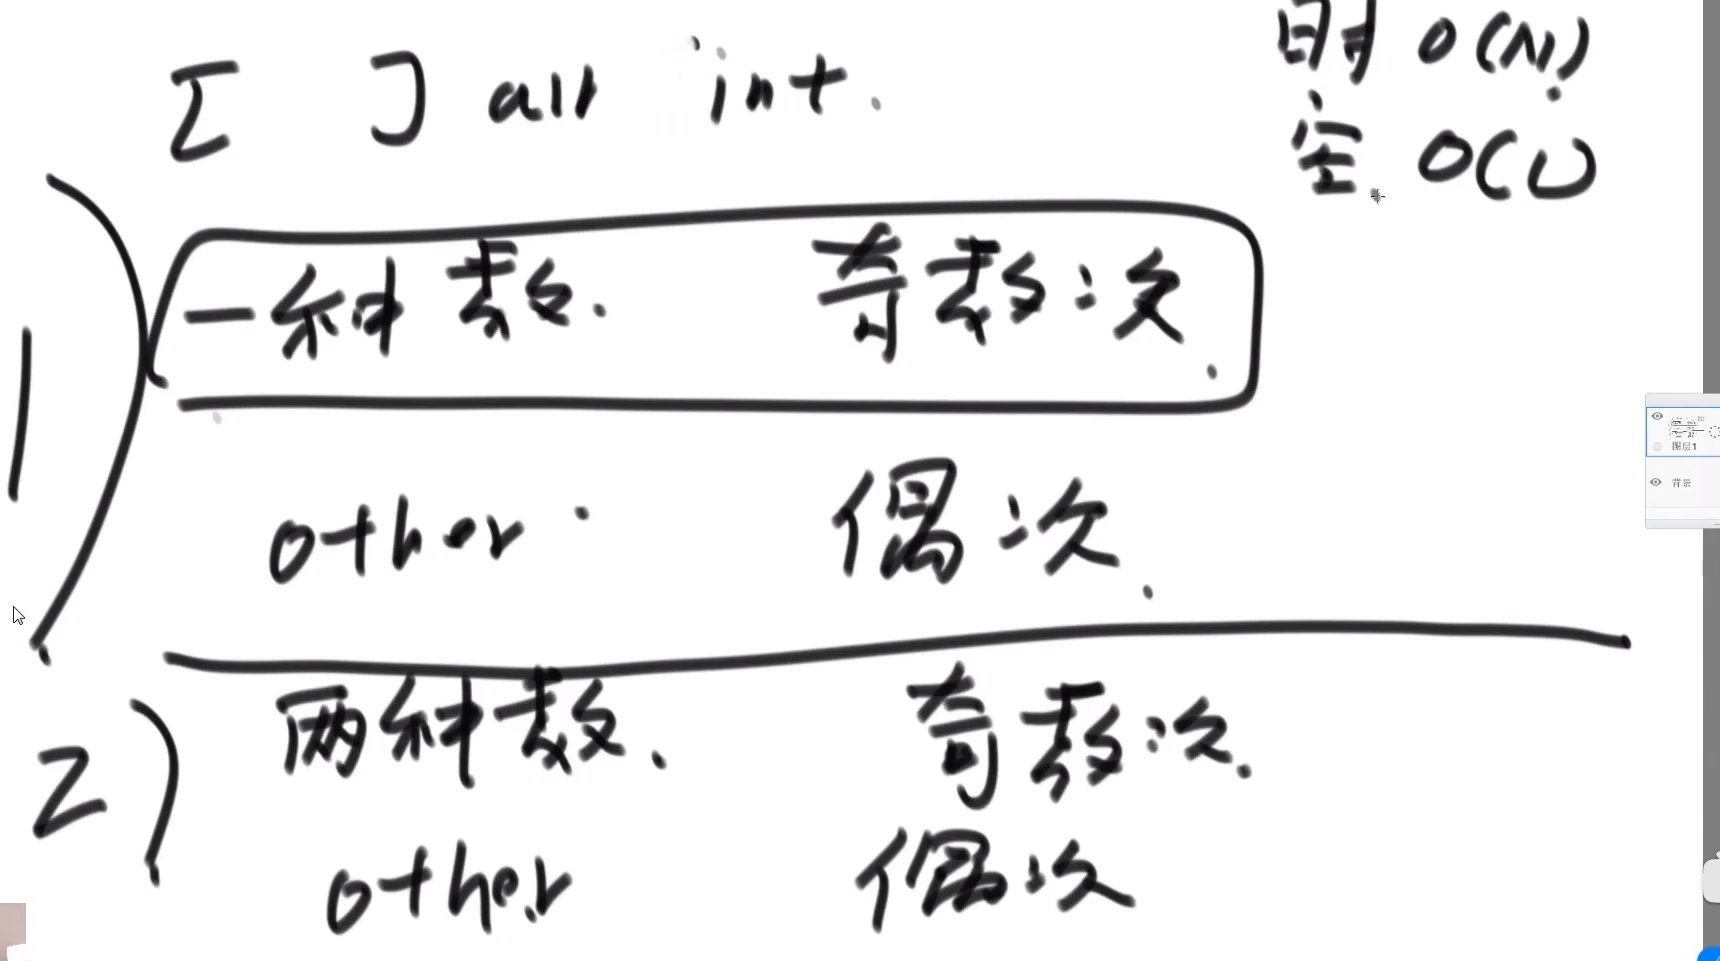 [ ] all int.
时 O(N)
空 O(1)
1) 一种数. 奇数次.
other. 偶次.
2) 两种数. 奇数次.
other 偶次
图层1
背景